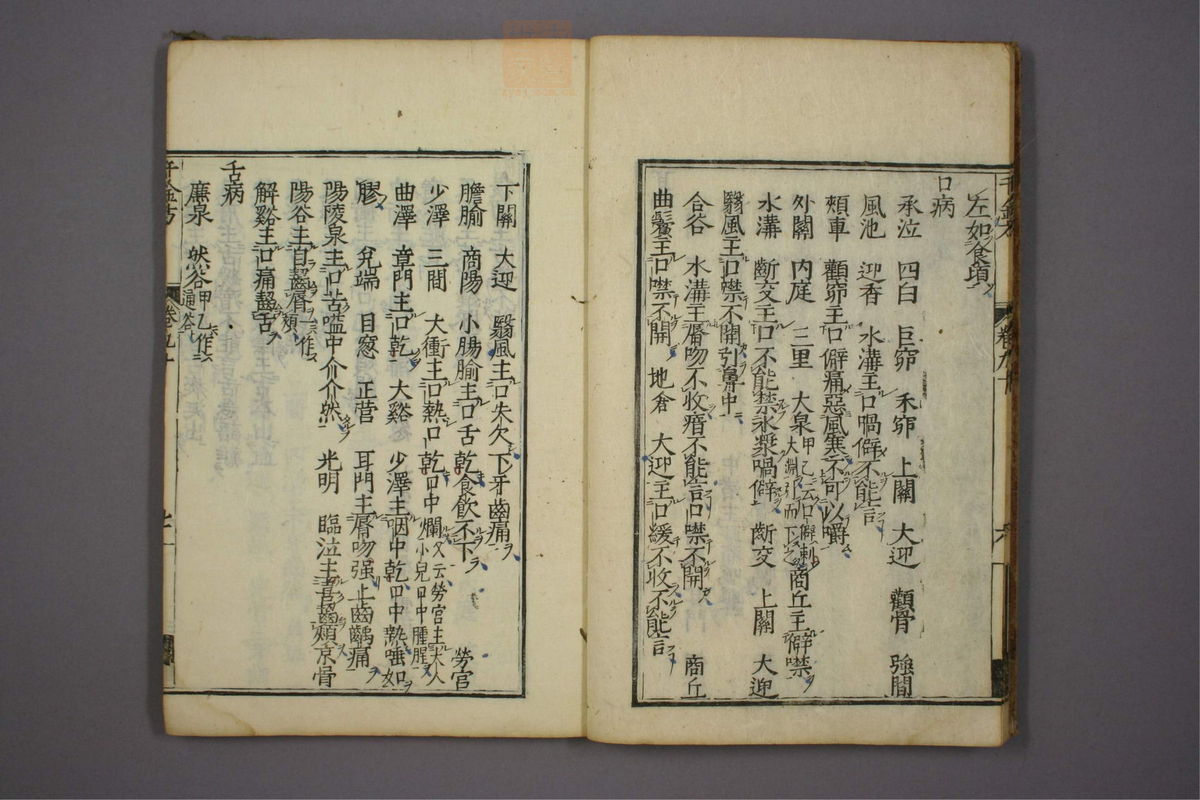 左如食頃
口病
承泣 四白 巨窌 禾窌 上關 大迎 顴骨 強間
風池 迎香 水溝主口喎僻不能言
頰車 顴窌主口僻痛惡風寒不可以嚼
外關 内庭 三里 大泉甲乙云口僻刺大淵引而下之商丘主僻噤
水溝 齗交主口不能禁水漿喎僻 齗交 上關 大迎
翳風主口噤不開引鼻中
合谷 水溝主脣吻不收瘖不能言口噤不開 商丘
曲鬢主口噤不開 地倉 大迎主口緩不收不能言
下關 大迎 翳風主口失欠下牙齒痛
膽腧 商陽 小腸腧主口舌乾食飲不下 勞宫
少澤 三間 大衝主口熱口乾口中爛又云勞宫主大人小兒口中腫腥
曲澤 章門主口乾 大谿 少澤主咽中乾口中熱唾如
膠 兊端 目窓 正营 耳門主脣吻强上齒齲痛
陽陵泉主口苦嗌中介介然 光明 臨泣主喜齧頰京骨
陽谷主自齧脣一作頰
解谿主口痛齧舌
舌病
廉泉 然谷甲乙作通谷